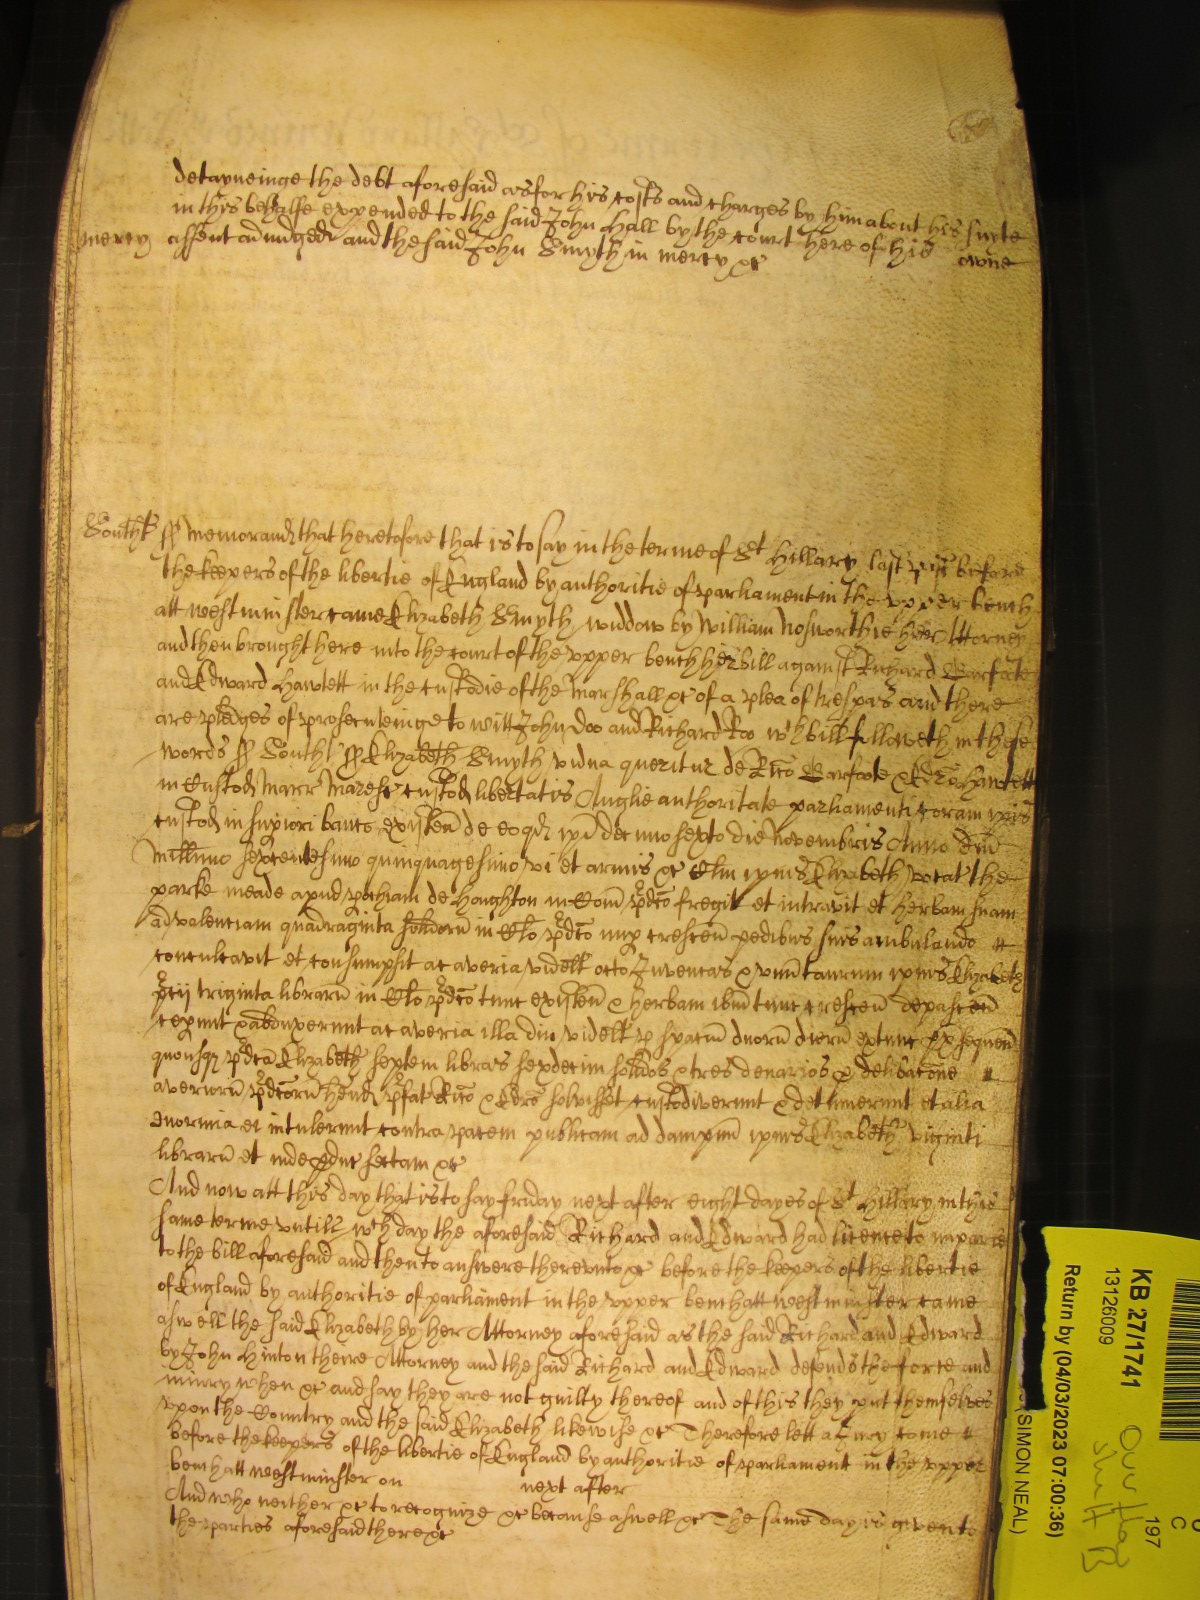 detayneinge the debt aforesaid as for his costs and charges by him about his suite
in this behalfe expended to the said John Hall by the court here of his owne
mercy assent adiudged and the said John Smyth in mercy &c
South't ss Memorand that heretofore that is to say in the terme of St Hillary last past before
the keepers of the libertie of England by authoritie of parliament in the upper bench
att Westminster came Elizabeth Smyth widdow by William Nosworthie her Attorney
and then brought here into the court of the upper bench her bill against Richard Barfoote
and Edward Hawlett in the custodie of the Marshall &c of a plea of trespas and there
are pledges of prosecuteinge to witt John Doo and Richard Roo wch bill followeth in these
words ss South't ss Elizabeth Smyth vidua queritur de Rico Barfoote & Edro Hawlett
in Custod Marr Maresc custod libertatis Anglie authoritate parliamenti coram ipis
custod in supiori banco existen de eo qd ipi decimo sexto die Novembris Anno Dni
Millimo sexcentesimo quinquagesimo vi et armis &c Clm ipius Elizabeth vocat the
parke meade apud pochiam de Houghton in Com pdco fregit et intravit et herbam suam
ad valenciam quadraginta solidorū in Clo pdco nup crescen pedibus suis ambulando
conculcavit et consumpsit ac averia videlt octo Juvencas & unum taurum ipius Elizabeth
pcij triginta librarū in Clo pdco tunc existen & herbam ibm tunc crescen depascen
cepunt & abduxerunt ac averia illa diu videlt p spacū duorū dierū extunc px sequen
quousq pdca Elizabeth septem libras sexdecim solidos & tres denarios p delibacone
averiorū pdcorū hend pfat Rico & Edro solvisset custodiverunt & detinuerunt et alia
enormia ei intulerunt contra pacem publicam ad dampnū ipius Elizabeth viginti
librarū et inde pduc sectam &c
And now att this day that is to say friday next after eight dayes of St Hillary in this
same terme untill wch day the aforesaid Richard and Edward had licence to imparle
to the bill aforesaid and then to answere thereunto &c before the keepers of the libertie
of England by authoritie of parliament in the upper bench att Westminster came
aswell the said Elizabeth by her Attorney aforesaid as the said Richard and Edward
by John Hinton theire Attorney and the said Richard and Edward defends the force and
iniury when &c and say they are not guilty thereof and of this they put themselves
upon the Country and the said Elizabeth likewise &c Therefore lett a Jury come
before the keepers of the libertie of England by authoritie of parliament in the upper
bench att Westminster on next after
And who neither &c to recognize &c because aswell &c The same day is given to
the parties aforesaid there &c
KB 27/1741
13126009
Return by (04/03/2023 07:00:36)
(SIMON NEAL)
197
C